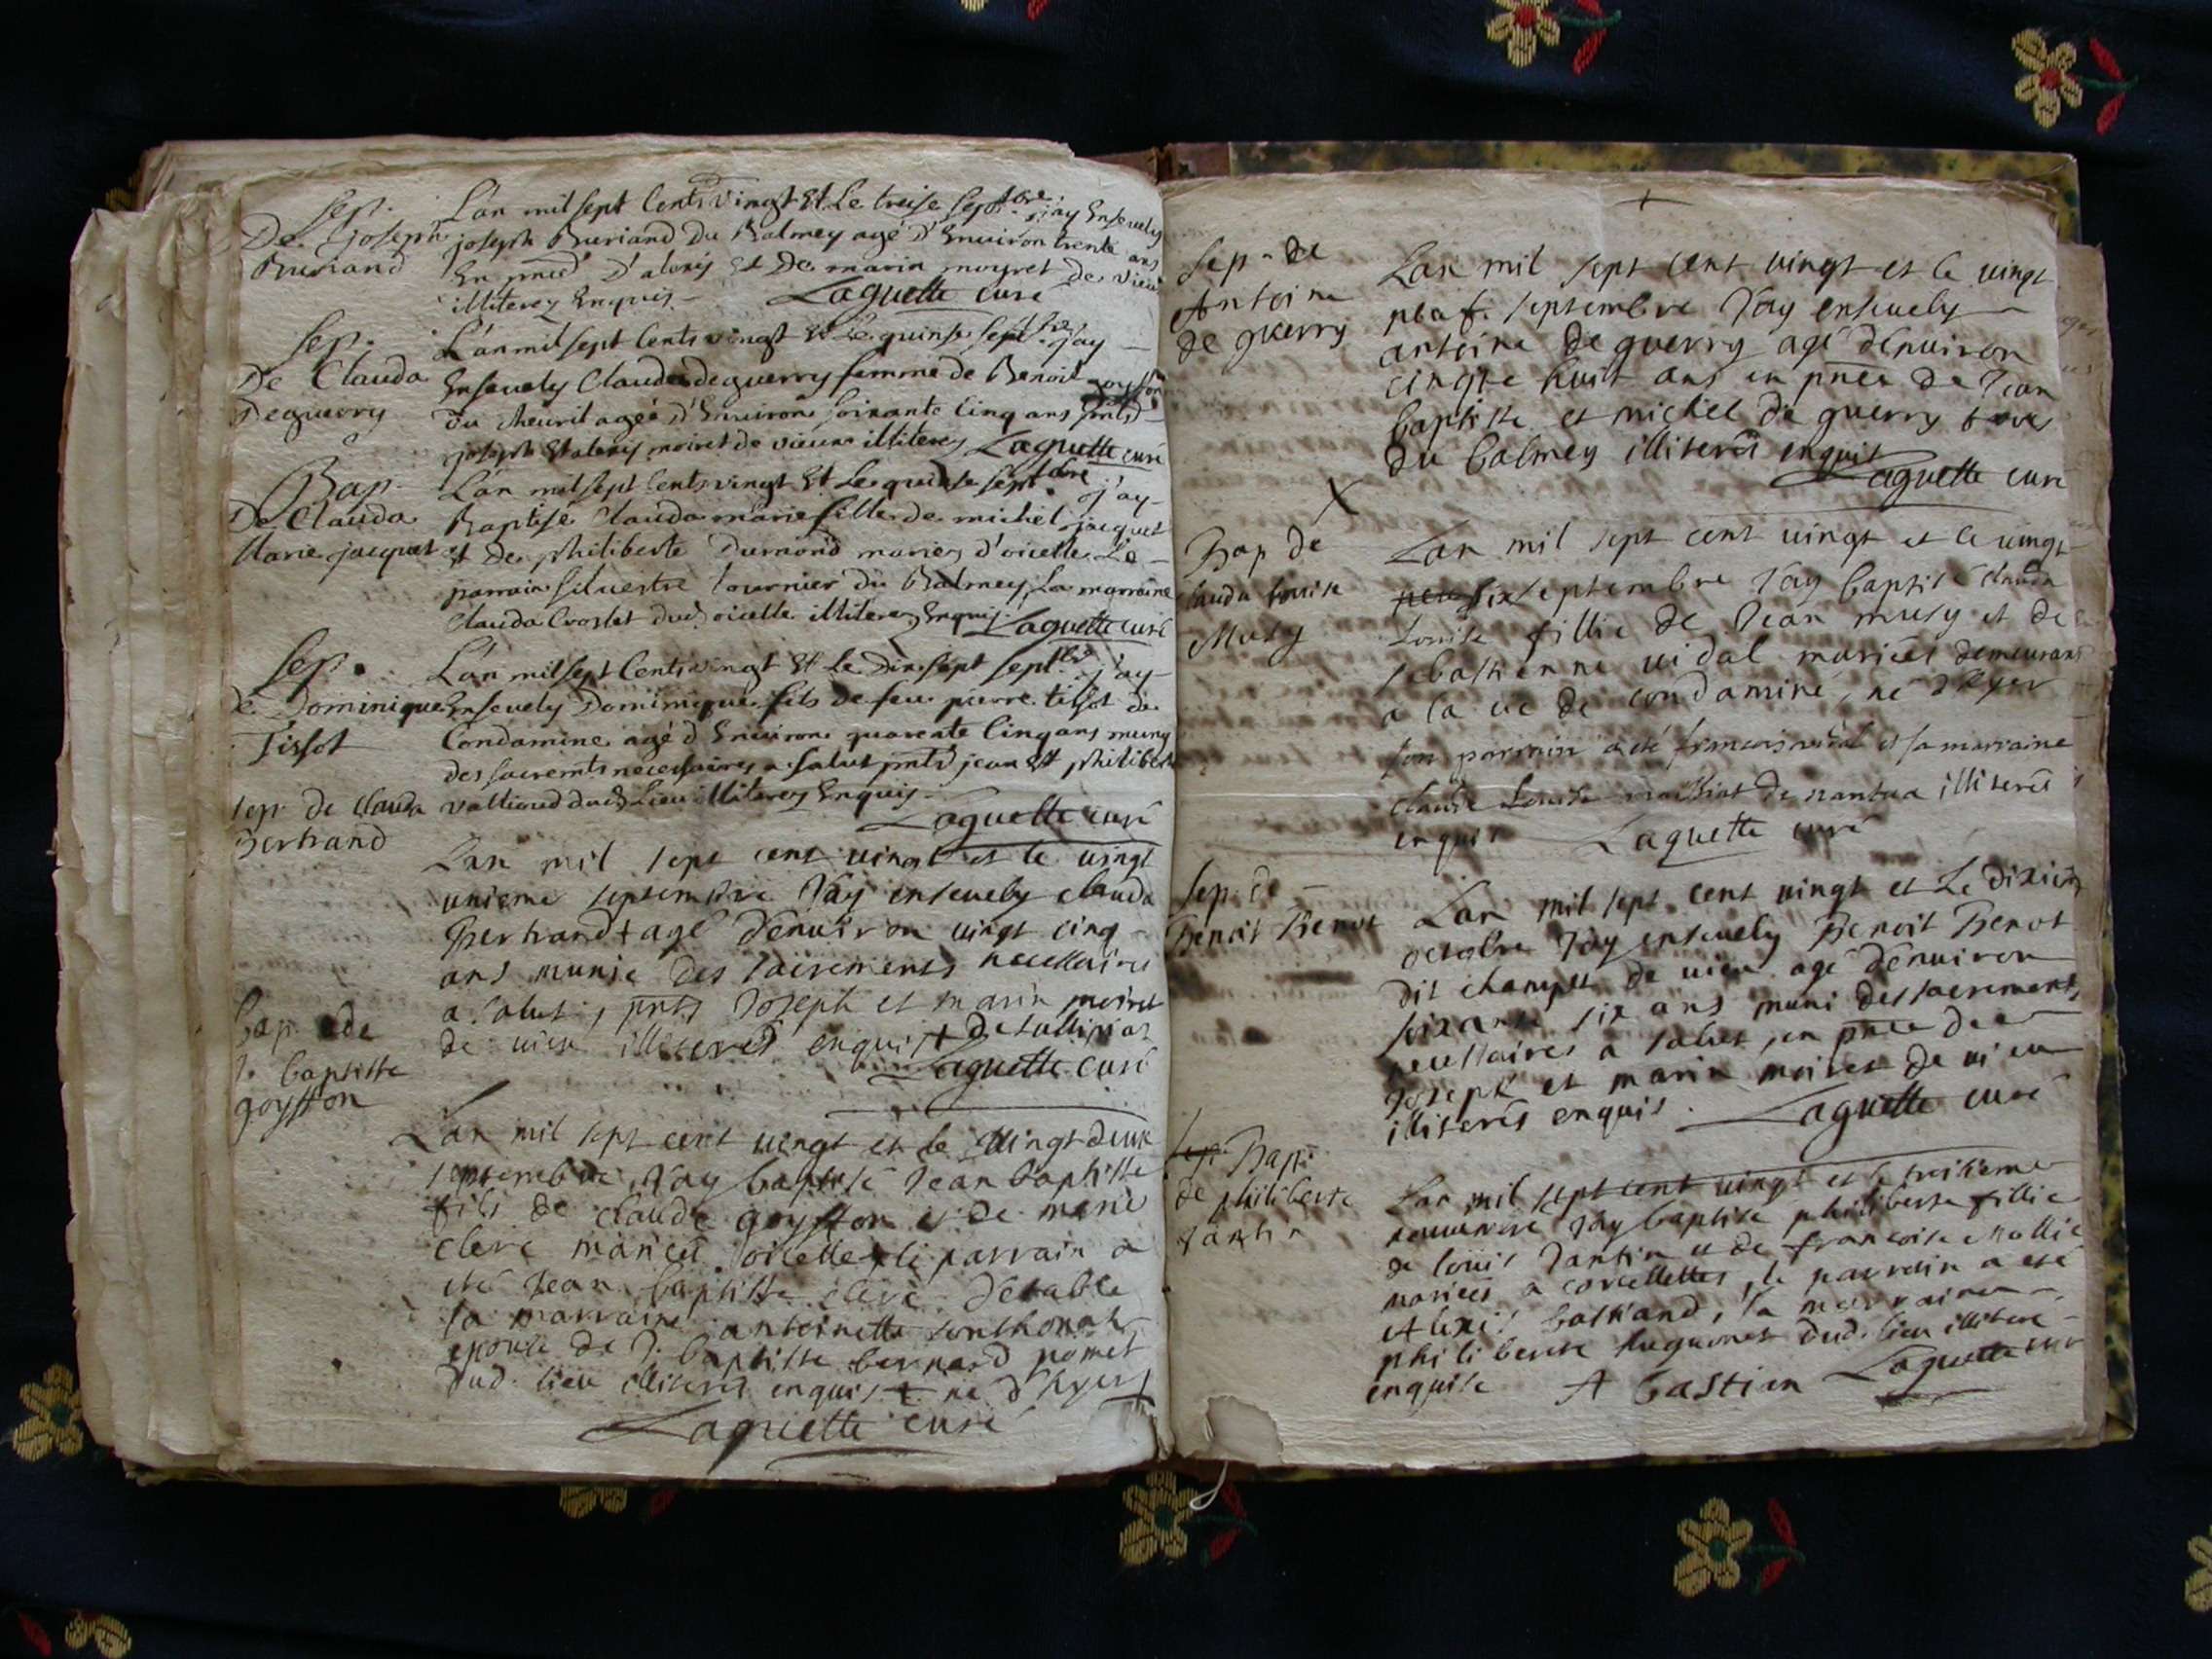 Sep.
De Joseph
Buriand
L'an mil sept Cents vingt Et Le treise sepbre j'ay Ensevely
joseph Buriand Du Balmey agé d'Environ trente ans
En pnce d'alexis Et De marin moyret de vieu
illiterez Enquis
Laguette curé
Sep.
De Clauda
Deguerry
L'an mil sept Cents vingt Et Le quinse septbre j'ay
Ensevely Clauda deguerry femme de Benoit goyffon
du agée d'Environ soixante Cinq ans pnts
joseph Et alexis moiret de vieux illiterez Laguette curé
Bap
De Clauda
Marie jacquet
L'an mil sept Cents vingt Et Le quinse septbre j'ay
Baptisé Clauda marie fille de michel jacquet
et De philiberte Dumond mariez d'oicelle Le
parrain silvestre tournier du Balmey, La marraine
Clauda Croslet dud oicelle illiterez Enquis Laguette curé
Sep.
de Dominique
Tissot
L'an mil sept Cents vingt Et Le Dix sept septbre j'ay
Ensevely Dominique fils de feu pierre tissot de
Condamine agé d'Environ quarente Cinq ans muny
des sacremts necessaires a salut pnts jean Et philibert
vallioud dud Lieu illiterez Enquis
Laguette curé
sep de Clauda
Bertrand
Lan mil sept cent vingt et le vingt
unieme septembre Jay ensevely clauda
Bertrand + agé denviron vingt cinq
ans munie des sacrements necessaires
a salut, pnts Joseph et marin moiret
de vieu illiterés enquis + de
Laguette curé
Bap de
J. baptiste
goyffon
Lan mil sept cent vingt et le vingt deux
septembre Jay baptisé Jean baptiste
fils de claude goyffon et de marie
clerc mariés oicelle le parrain a
esté Jean baptiste clerc
la marraine antoinette sonthonax
epouse de J. baptiste bernard pomet
dud. lieu illiterés enquis ne d'hyer
Laguette curé
Sep de
Antoine
de guerry
Lan mil sept cent vingt et le vingt
neuf septembre Jay ensevely
antoine de guerry agé denviron
cinqte huit ans en pnce de Jean
baptiste et michel de guerry tous
du balmey illiterés enquis
Laguette curé
X
Bap de
clauda louise
Musy
Lan mil sept cent vingt et le vingt
six septembre Jay baptisé clauda
Louise fillie de Jean musy et de
sebastienne vidal mariés demeurans
a la vie de condamine, né d'hyer
son parrain a eté francois vidal et sa marraine
claude Louise de nantua illiterés
enquis Laguette curé
Sep de
Benoit Benot
Lan mil sept cent vingt et Le dixieme
octobre Jay ensevely Benoit Benot
dit champet de vieu agé denviron
soixante six ans muni des sacrements
necessaires a salut, en pnce de
Joseph et marin moiret de vieu
illiterés enquis. Laguette curé
Bap
de philiberte
Jantin
Lan mil sept cent vingt et le troisieme
novembre Jay baptisé philiberte fillie
de louis Jantin et de francoise Mollie
mariés a corcellettes, le parrain a esté
Alexis bastiand, la marraine
philiberte huguonet dud. lieu illiterée
enquise A bastian Laguette curé